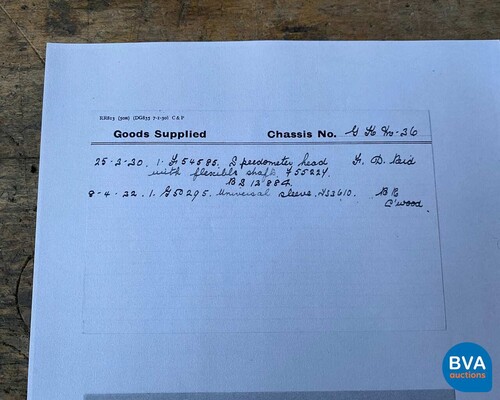 ER823 (500) (DG835 7-1-30) C & P
Goods Supplied Chassis No. G
25-2-30. 1. F54585. Speedometer head F. D.
with flexible shaft. F55224.
BS 12884.
8-4-32. 1. F50295. Universal sleeve. N52610. BE
C'wood.
BVA
auctions